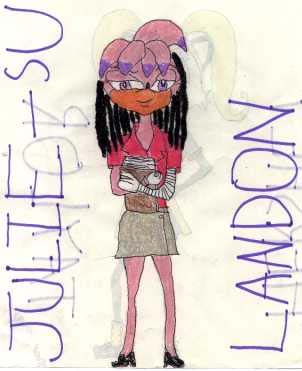 JULIE-SU
LANDON